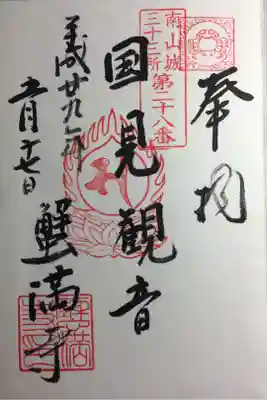 奉拝
南山城
三十三所
第二十八番
国見観音
平成廿九年
五月十七日
蟹満寺
蟹満寺